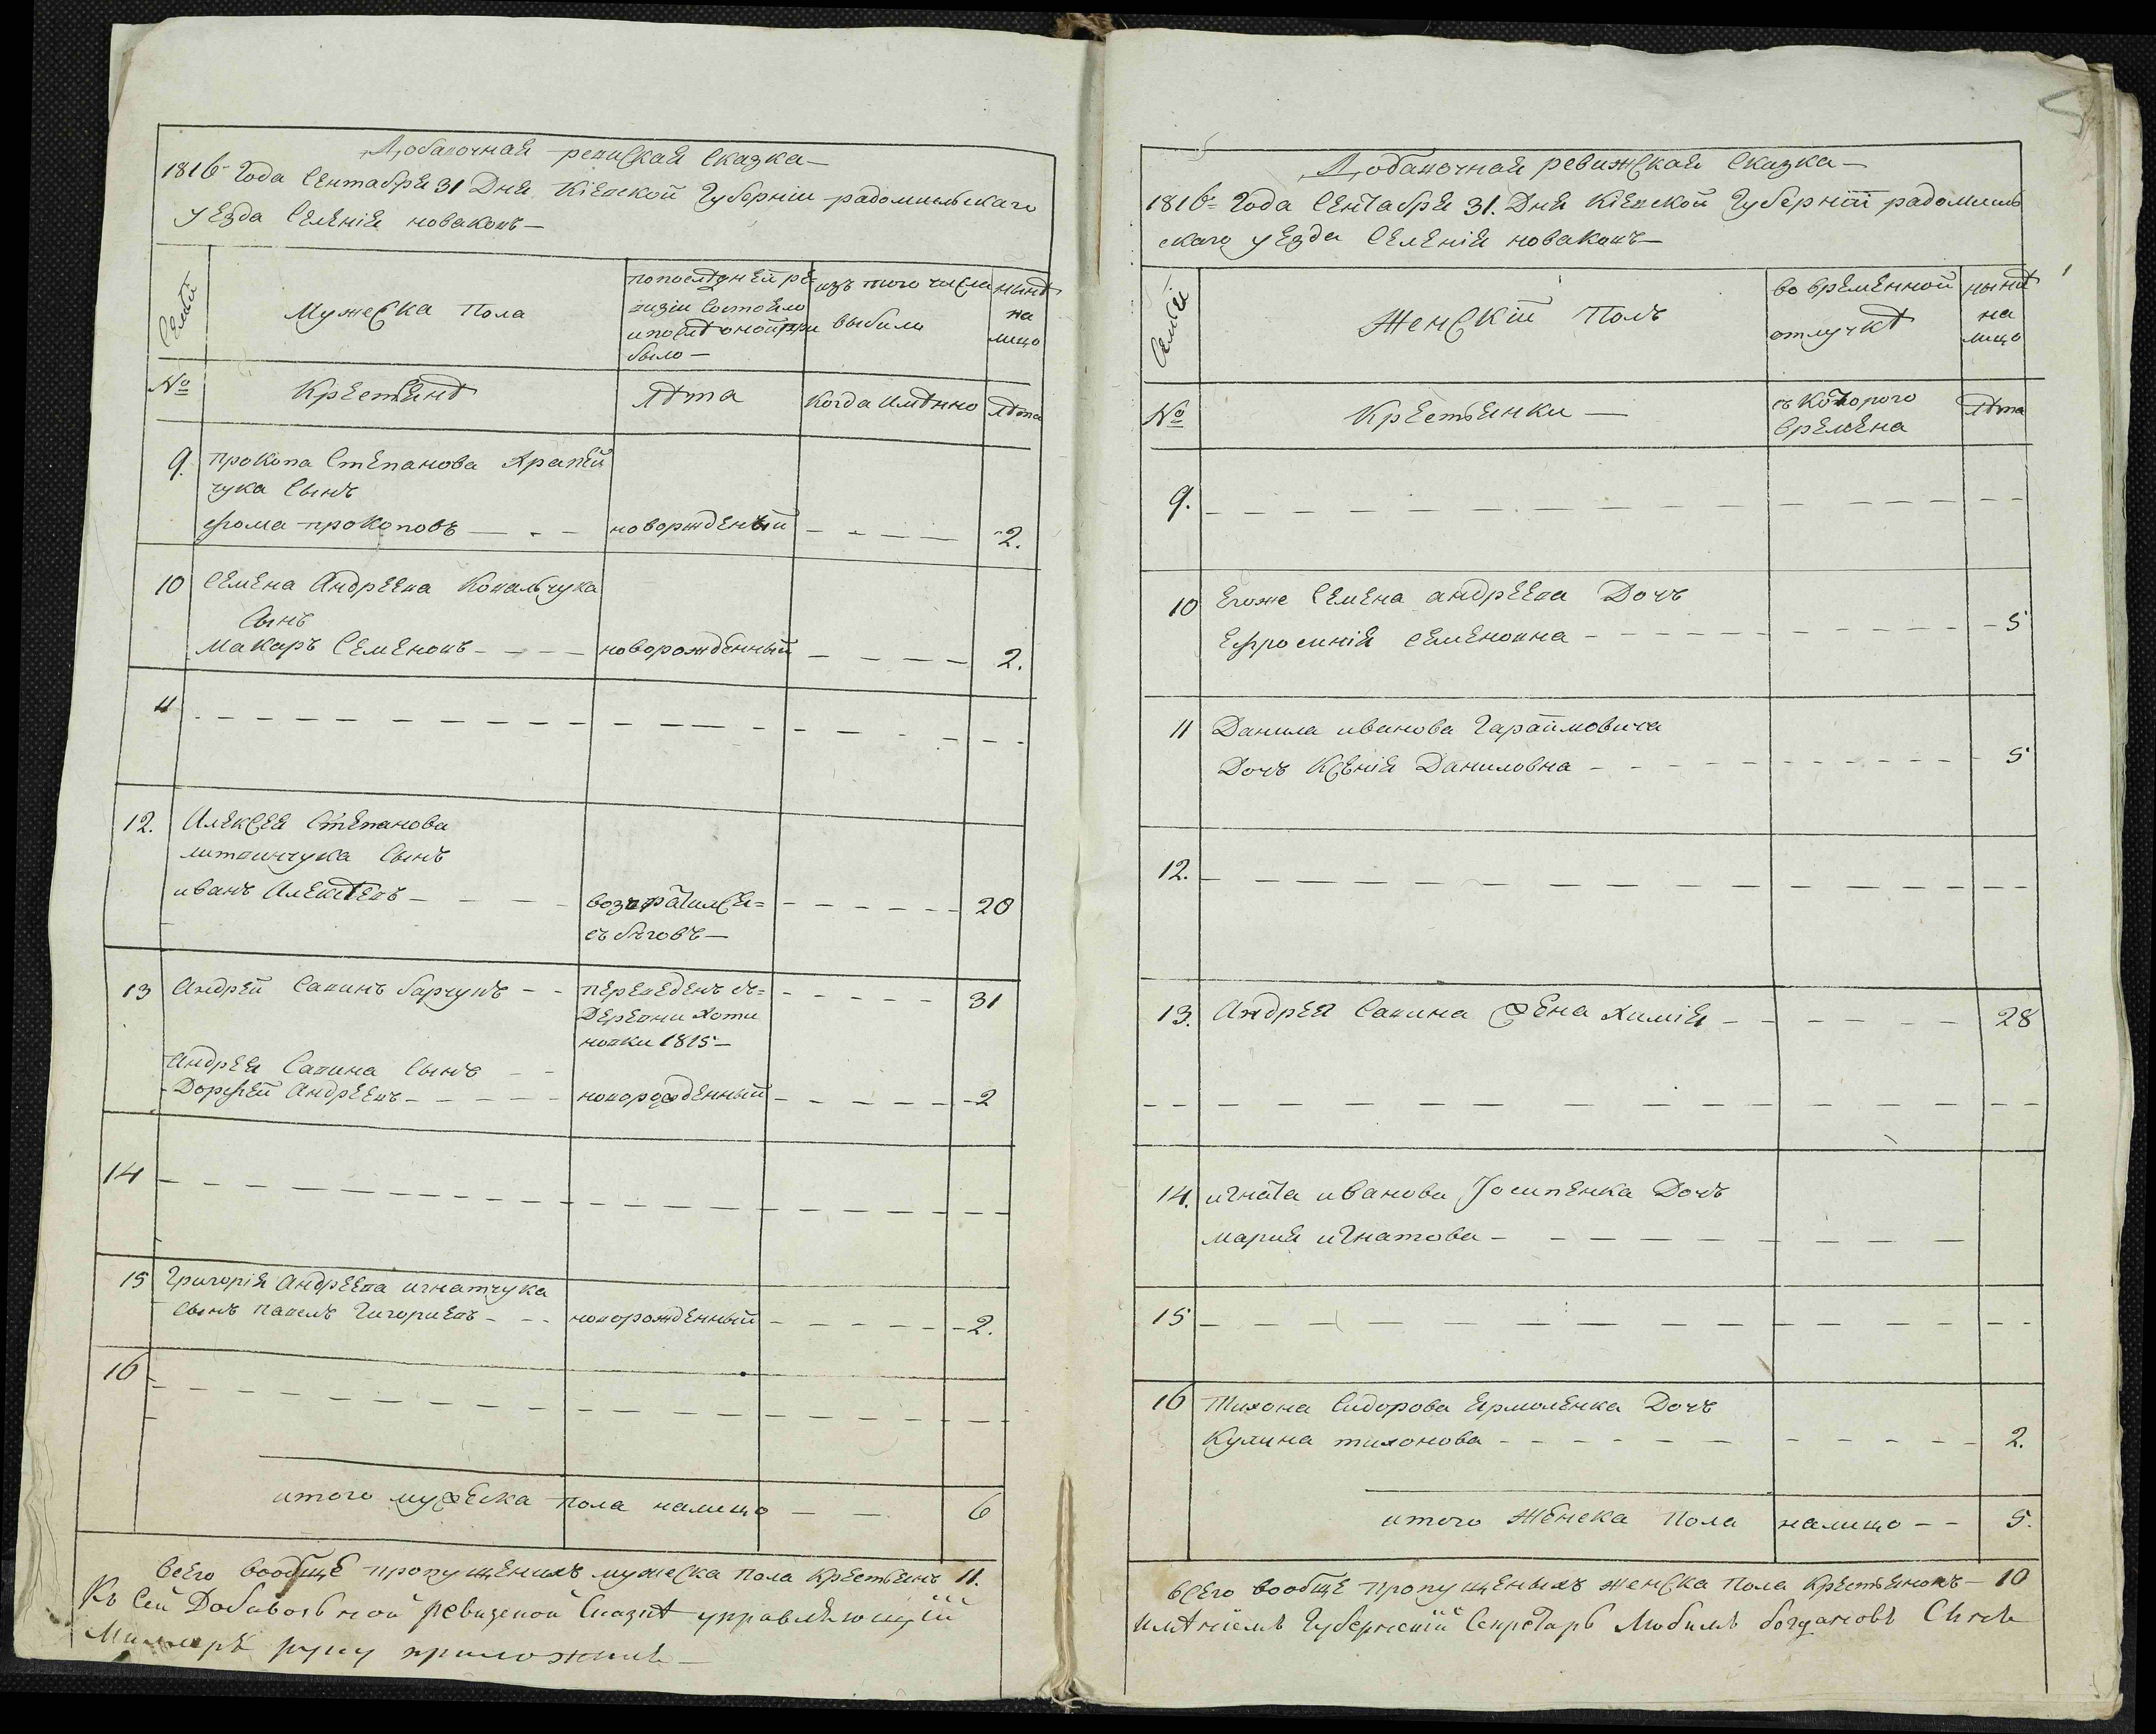 Добавочная ревиская сказка—
1816 Года Сентабря 31 Дня Кіевской Губерніи радомысльскаго
уезда Селенія новаковъ—
Семьи
Мужеска пола
попоследней ре-
визіи состояло
ипосле оной при
было—
изъ того числа
выбыло
ныне
на
лицо
№
Крестьяне
Лета
Когда имянно
Лета
9. прокопа Степанова Храпей
чука Сынъ
фома прокоповъ — новоржденый — 2.
10 Семена Андреева Ковальчука
Сынъ
Макаръ Семеновъ — новорожденный — 2.
11
12. Алексея Степанова
литвинчука Сынъ
иванъ Алексеевъ — возвратился 20
съ беговъ—
13 Андрей Савинъ барчукъ — переведенъ съ 31
деревни Хоти
новки 1815—
Андрея Савина Сынъ
Дорофей Андреевъ — новорожденный — 2
14
15 Григорія Андреева игнатчука
сынъ павелъ Гигориевъ — новорожденный — 2.
16
итого мужеска пола налицо — 6
всего вообще пропущеныхъ мужеска пола крестьянъ 11.
Къ Сей Добавочной ревизской Сказке управляющій
руку приложилъ—
Добавочная ревижская Сказка—
1816 Года Сентабря 31. Дня Кіевской Губерніи радомысль
скаго уезда Селенія новаковъ—
Семьи
Женскій Полъ
во временной
отлучке
ныне
на
лицо
№
Крестьянки —
съ которого
времена
Лета
9.
10 Егоже Семена андреева Дочь
Ефросинія Семеновна — 5
11 Данила иванова Гараймовича
Дочь Ксенія Даниловна — 5
12.
13. Андрея Савина жена химія — 28
14. игната иванова Иосипенка Дочь
мария игнатова —
15
16 Тихона Сидорова Ярмоленка Дочь
Кулина тихонова — 2.
итого женска пола налицо — 5.
всего вообще пропущеныхъ женска пола крестьянокъ — 10
именіемъ Губернскій Секретарь Любимъ богдановъ Сынъ